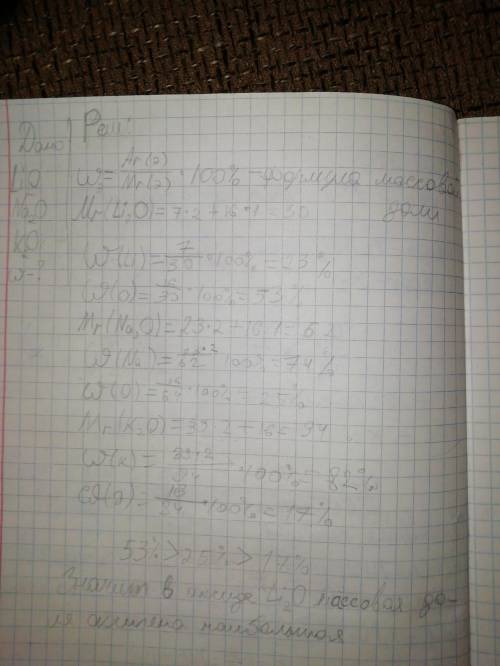 Дано
Реш:
Li₂O
Na₂O
K₂O
W-?
W=Ar(э)/Mr(э)·100%-формула массовой
доли
Mr(Li₂O)=7·2+16·1=30
W(Li)=7/30·100%=23%
W(O)=16/30·100%=53%
Mr(Na₂O)=23·2+16·1=62
W(Na)=23·2/62·100%=74%
W(O)=16/62·100%=25%
Mr(K₂O)=39·2+16=94
W(K)=39·2/94·100%=82%
W(O)=16/94·100%=17%
53%>25%>17%
Значит в оксиде Li₂O массовая до-
ля наибольшая